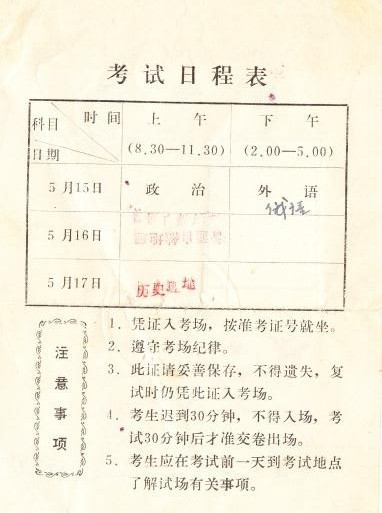 考试日程表
时间 上午 下午
科目 (8.30—11.30) (2.00—5.00)
日期
5月15日 政治 外语
俄语
5月16日
5月17日 历史 地
注意事项
1. 凭证入考场，按准考证号就坐。
2. 遵守考场纪律。
3. 此证请妥善保存，不得遗失，复
试时仍凭此证入考场。
4. 考生迟到30分钟，不得入场，考
试30分钟后才准交卷出场。
5. 考生应在考试前一天到考试地点
了解试场有关事项。